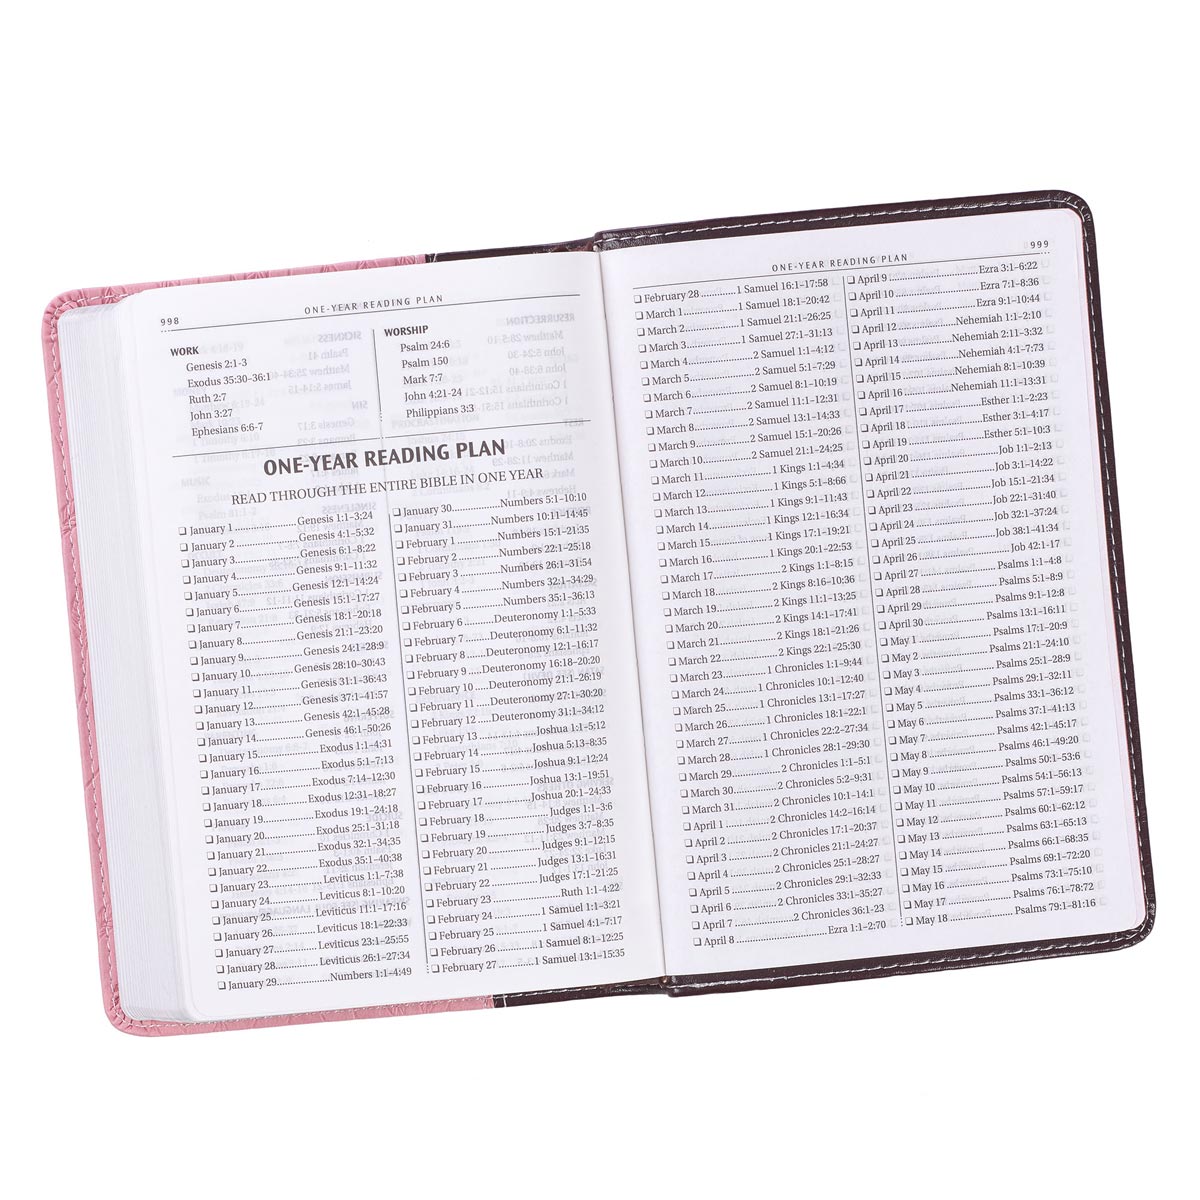 998
ONE-YEAR READING PLAN
WORK
Genesis 2:1–3
Exodus 35:30–36:1
Ruth 2:7
John 3:27
Ephesians 6:6-7
WORSHIP
Psalm 24:6
Psalm 150
Mark 7:7
John 4:21-24
Philippians 3:3
ONE-YEAR READING PLAN
READ THROUGH THE ENTIRE BIBLE IN ONE YEAR
❏ January 1 Genesis 1:1–3:24
❏ January 2 Genesis 4:1–5:32
❏ January 3 Genesis 6:1–8:22
❏ January 4 Genesis 9:1–11:32
❏ January 5 Genesis 12:1–14:24
❏ January 6 Genesis 15:1–17:27
❏ January 7 Genesis 18:1–20:18
❏ January 8 Genesis 21:1–23:20
❏ January 9 Genesis 24:1–28:9
❏ January 10 Genesis 28:10–30:43
❏ January 11 Genesis 31:1–36:43
❏ January 12 Genesis 37:1–41:57
❏ January 13 Genesis 42:1–45:28
❏ January 14 Genesis 46:1–50:26
❏ January 15 Exodus 1:1–4:31
❏ January 16 Exodus 5:1–7:13
❏ January 17 Exodus 7:14–12:30
❏ January 18 Exodus 12:31–18:27
❏ January 19 Exodus 19:1–24:18
❏ January 20 Exodus 25:1–31:18
❏ January 21 Exodus 32:1–34:35
❏ January 22 Exodus 35:1–40:38
❏ January 23 Leviticus 1:1–7:38
❏ January 24 Leviticus 8:1–10:20
❏ January 25 Leviticus 11:1–17:16
❏ January 26 Leviticus 18:1–22:33
❏ January 27 Leviticus 23:1–25:55
❏ January 28 Leviticus 26:1–27:34
❏ January 29 Numbers 1:1–4:49
❏ January 30 Numbers 5:1–10:10
❏ January 31 Numbers 10:11–14:45
❏ February 1 Numbers 15:1–21:35
❏ February 2 Numbers 22:1–25:18
❏ February 3 Numbers 26:1–31:54
❏ February 4 Numbers 32:1–34:29
❏ February 5 Numbers 35:1–36:13
❏ February 6 Deuteronomy 1:1–5:33
❏ February 7 Deuteronomy 6:1–11:32
❏ February 8 Deuteronomy 12:1–16:17
❏ February 9 Deuteronomy 16:18–20:20
❏ February 10 Deuteronomy 21:1–26:19
❏ February 11 Deuteronomy 27:1–30:20
❏ February 12 Deuteronomy 31:1–34:12
❏ February 13 Joshua 1:1–5:12
❏ February 14 Joshua 5:13–8:35
❏ February 15 Joshua 9:1–12:24
❏ February 16 Joshua 13:1–19:51
❏ February 17 Joshua 20:1–24:33
❏ February 18 Judges 1:1–3:6
❏ February 19 Judges 3:7–8:35
❏ February 20 Judges 9:1–12:15
❏ February 21 Judges 13:1–16:31
❏ February 22 Judges 17:1–21:25
❏ February 23 Ruth 1:1–4:22
❏ February 24 1 Samuel 1:1–3:21
❏ February 25 1 Samuel 4:1–7:17
❏ February 26 1 Samuel 8:1–12:25
❏ February 27 1 Samuel 13:1–15:35
ONE-YEAR READING PLAN
999
❏ February 28 1 Samuel 16:1–17:58
❏ March 1 1 Samuel 18:1–20:42
❏ March 2 1 Samuel 21:1–26:25
❏ March 3 1 Samuel 27:1–31:13
❏ March 4 2 Samuel 1:1–4:12
❏ March 5 2 Samuel 5:1–7:29
❏ March 6 2 Samuel 8:1–10:19
❏ March 7 2 Samuel 11:1–12:31
❏ March 8 2 Samuel 13:1–14:33
❏ March 9 2 Samuel 15:1–20:26
❏ March 10 2 Samuel 21:1–24:25
❏ March 11 1 Kings 1:1–4:34
❏ March 12 1 Kings 5:1–8:66
❏ March 13 1 Kings 9:1–11:43
❏ March 14 1 Kings 12:1–16:34
❏ March 15 1 Kings 17:1–19:21
❏ March 16 1 Kings 20:1–22:53
❏ March 17 2 Kings 1:1–8:15
❏ March 18 2 Kings 8:16–10:36
❏ March 19 2 Kings 11:1–13:25
❏ March 20 2 Kings 14:1–17:41
❏ March 21 2 Kings 18:1–21:26
❏ March 22 2 Kings 22:1–25:30
❏ March 23 1 Chronicles 1:1–9:44
❏ March 24 1 Chronicles 10:1–12:40
❏ March 25 1 Chronicles 13:1–17:27
❏ March 26 1 Chronicles 18:1–22:1
❏ March 27 1 Chronicles 22:2–27:34
❏ March 28 1 Chronicles 28:1–29:30
❏ March 29 2 Chronicles 1:1–5:1
❏ March 30 2 Chronicles 5:2–9:31
❏ March 31 2 Chronicles 10:1–14:1
❏ April 1 2 Chronicles 14:2–16:14
❏ April 2 2 Chronicles 17:1–20:37
❏ April 3 2 Chronicles 21:1–24:27
❏ April 4 2 Chronicles 25:1–28:27
❏ April 5 2 Chronicles 29:1–32:33
❏ April 6 2 Chronicles 33:1–35:27
❏ April 7 2 Chronicles 36:1–23
❏ April 8 Ezra 1:1–2:70
❏ April 9 Ezra 3:1–6:22
❏ April 10 Ezra 7:1–8:36
❏ April 11 Ezra 9:1–10:44
❏ April 12 Nehemiah 1:1–2:10
❏ April 13 Nehemiah 2:11–3:32
❏ April 14 Nehemiah 4:1–7:73
❏ April 15 Nehemiah 8:1–10:39
❏ April 16 Nehemiah 11:1–13:31
❏ April 17 Esther 1:1–2:23
❏ April 18 Esther 3:1–4:17
❏ April 19 Esther 5:1–10:3
❏ April 20 Job 1:1–2:13
❏ April 21 Job 3:1–14:22
❏ April 22 Job 15:1–21:34
❏ April 23 Job 22:1–31:40
❏ April 24 Job 32:1–37:24
❏ April 25 Job 38:1–41:34
❏ April 26 Job 42:1–17
❏ April 27 Psalms 1:1–4:8
❏ April 28 Psalms 5:1–8:9
❏ April 29 Psalms 9:1–12:8
❏ April 30 Psalms 13:1–16:11
❏ May 1 Psalms 17:1–20:9
❏ May 2 Psalms 21:1–24:10
❏ May 3 Psalms 25:1–28:9
❏ May 4 Psalms 29:1–32:11
❏ May 5 Psalms 33:1–36:12
❏ May 6 Psalms 37:1–41:13
❏ May 7 Psalms 42:1–45:17
❏ May 8 Psalms 46:1–49:20
❏ May 9 Psalms 50:1–53:6
❏ May 10 Psalms 54:1–56:13
❏ May 11 Psalms 57:1–59:17
❏ May 12 Psalms 60:1–62:12
❏ May 13 Psalms 63:1–65:13
❏ May 14 Psalms 66:1–68:35
❏ May 15 Psalms 69:1–72:20
❏ May 16 Psalms 73:1–75:10
❏ May 17 Psalms 76:1–78:72
❏ May 18 Psalms 79:1–81:16